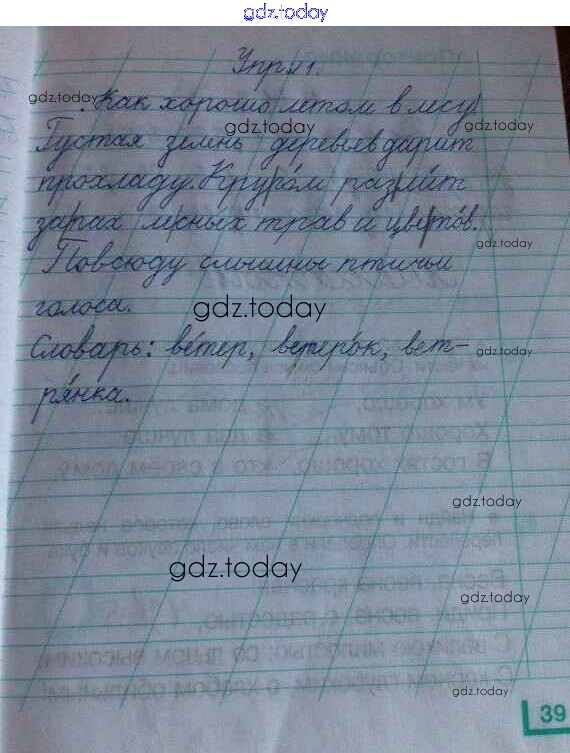 gdz.today
Упр. 1.
gdz.today
Как хорошо летом в лесу!
gdz.today
Густая зелень деревьев дарит
gdz.today
прохладу. Кругом разлит
запах лесных трав и цветов.
gdz.today
Повсюду слышны птичьи
голоса.
gdz.today
Словарь: ве́тер, ветеро́к, вет-
gdz.today
ря́нка.
gdz.today
gdz.today
gdz.today
gdz.today
gdz.today
39